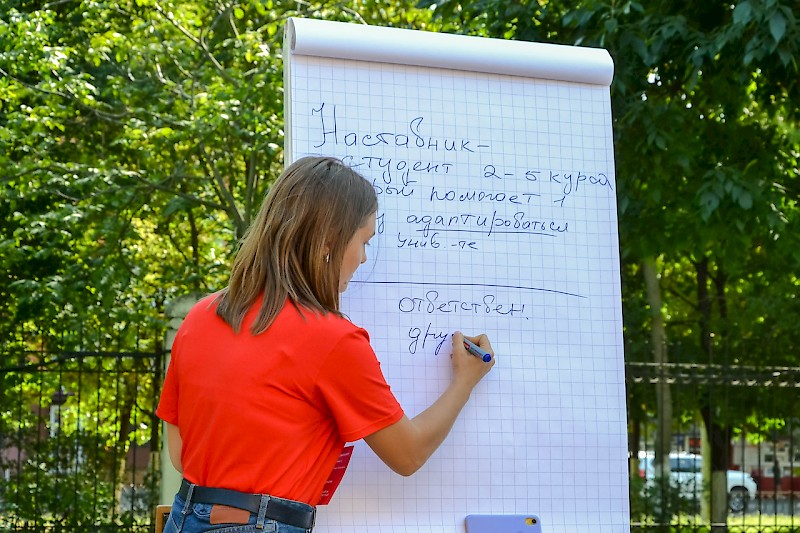 Наставник-
студент 2-5 курса
рый помогает 1
адаптироваться
унив.-те
ответствен!
дру